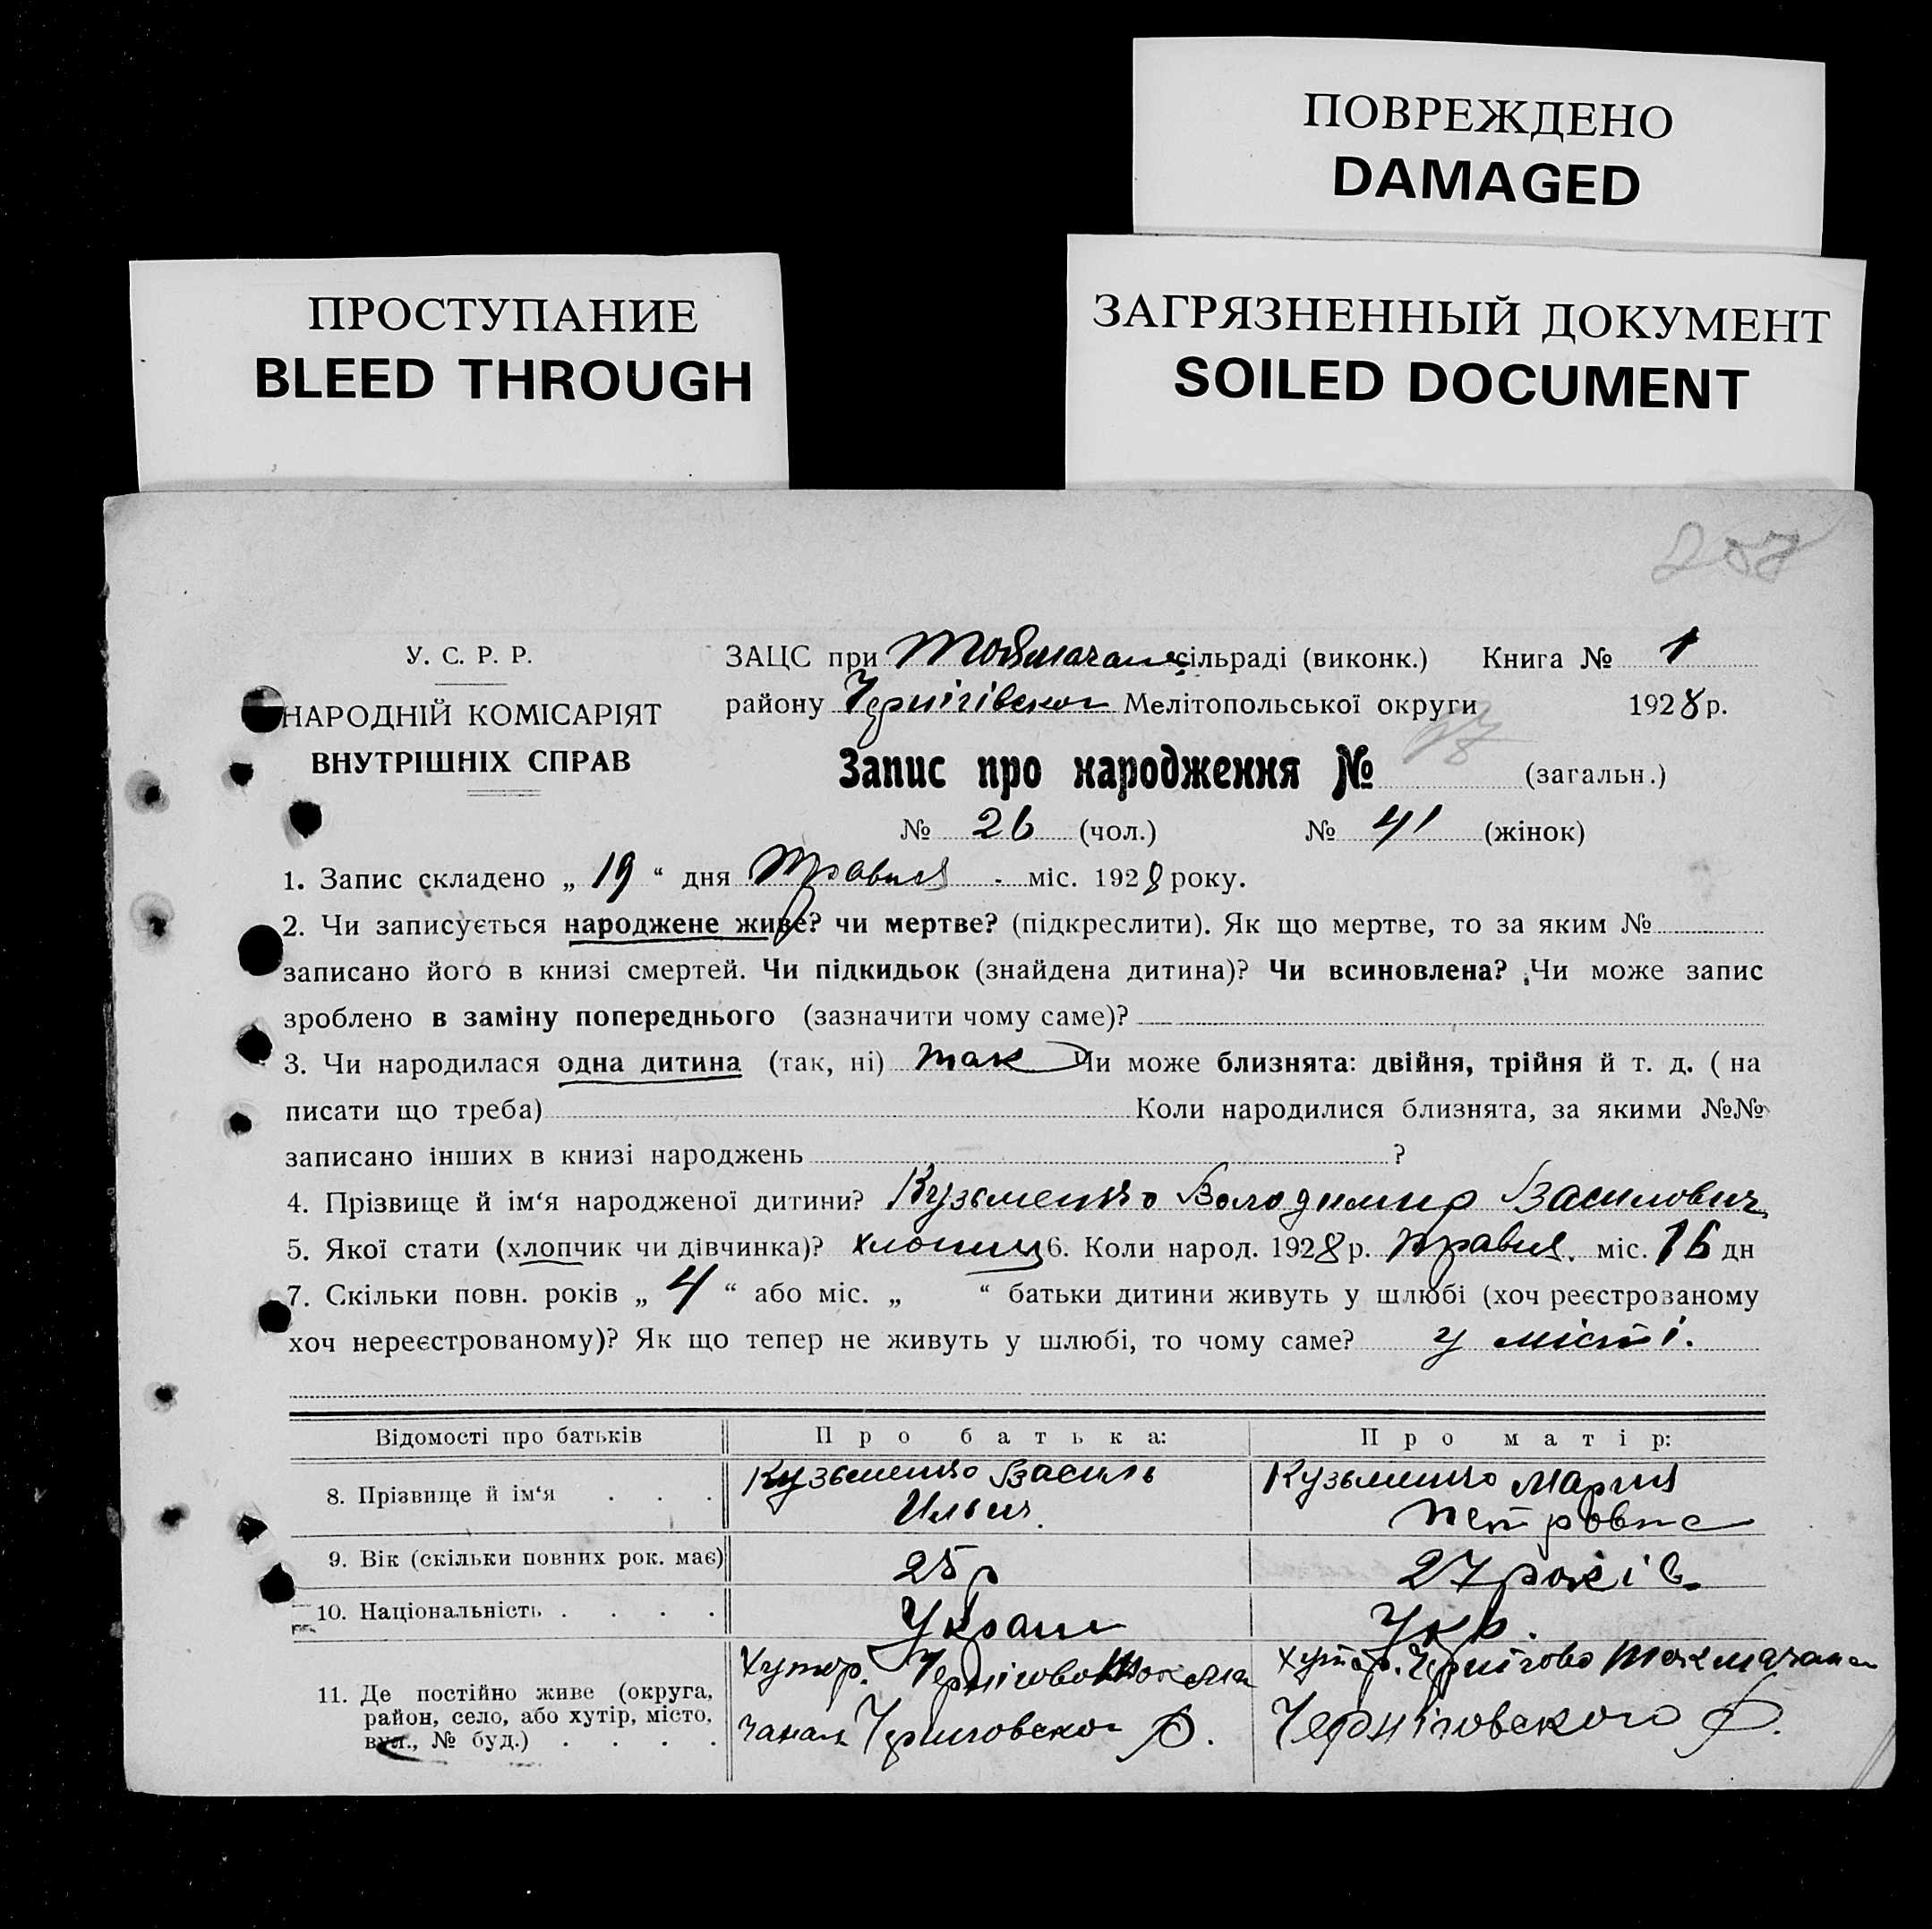 ПОВРЕЖДЕНО
DAMAGED
ПРОСТУПАНИЕ
BLEED THROUGH
ЗАГРЯЗНЕННЫЙ ДОКУМЕНТ
SOILED DOCUMENT
У. С. Р. Р.
НАРОДНІЙ КОМІСАРІЯТ
ВНУТРІШНІХ СПРАВ
ЗАЦС при сільраді (виконк.) Книга № 1
району Чернігівськ Мелітопольської округи 1928 р.
Запис про народження № (загальн.)
№ 26 (чол.) № 41 (жінок)
1. Запис складено „ 19 “ дня Травня міс. 1928 року.
2. Чи записується народжене живе? чи мертве? (підкреслити). Як що мертве, то за яким №
записано його в книзі смертей. Чи підкидьок (знайдена дитина)? Чи всиновлена? Чи може запис
зроблено в заміну попереднього (зазначити чому саме)?
3. Чи народилася одна дитина (так, ні) так Чи може близнята: двійня, трійня й т. д. ( на
писати що треба) Коли народилися близнята, за якими №№
записано інших в книзі народжень ?
4. Прізвище й ім‘я народженої дитини? Кузьменко Володимир Василович
5. Якої стати (хлопчик чи дівчинка)? хлопиць 6. Коли народ. 1928 р. травня. міс. 16 дн
7. Скільки повн. років „ 4 “ або міс. „ “ батьки дитини живуть у шлюбі (хоч реєстрованому
хоч нереєстрованому)? Як що тепер не живуть у шлюбі, то чому саме? у місті.
Відомості про батьків Про батька: Про матір:
8. Прізвище й ім‘я . . . Кузьменко Василь Ильич. Кузьменко Мария Петровна
9. Вік (скільки повних рок. має) 25 р 27 років.
10. Національність . . . . Украин Укр.
11. Де постійно живе (округа, Хутор. Чернігово Токма хутор. Чернігово Токмачанс
район, село, або хутір, місто,
вул., № буд.) . . . . чанськ Черниговског р. Черніговского р.